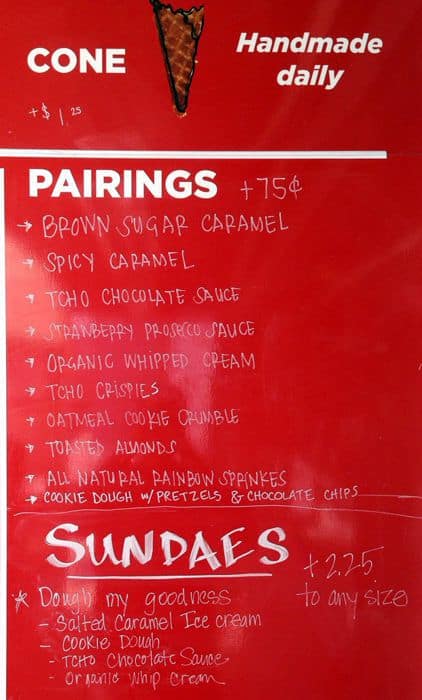 CONE
Handmade
daily
+$1.25
PAIRINGS +75¢
→ BROWN SUGAR CARAMEL
→ SPICY CARAMEL
→ TCHO CHOCOLATE SAUCE
→ STRAWBERRY PROSECCO SAUCE
→ ORGANIC WHIPPED CREAM
→ TCHO CRISPIES
→ OATMEAL COOKIE CRUMBLE
→ TOASTED ALMONDS
→ ALL NATURAL RAINBOW SPRINKES
→ COOKIE DOUGH W/ PRETZELS & CHOCOLATE CHIPS
SUNDAES +2.25
to any size
* Dough my goodness
- Salted Caramel Ice cream
- Cookie Dough
- TCHO Chocolate Sauce
- Organic Whip Cream